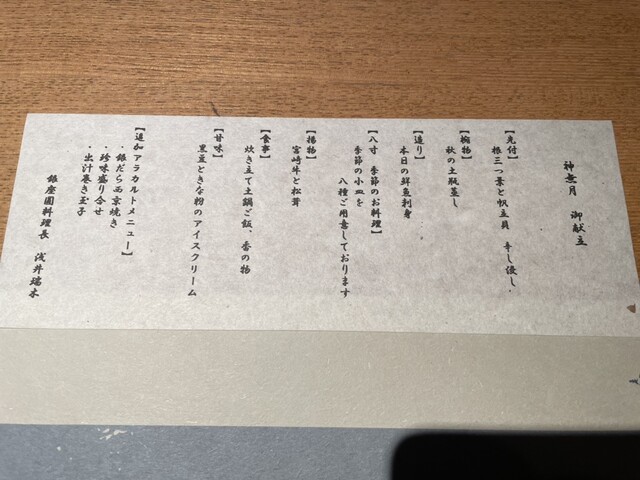 神無月 御献立
【先付】
根三つ葉と帆立貝 辛し浸し
【椀物】
秋の土瓶蒸し
【造り】
本日の鮮魚刺身
【八寸 季節のお料理】
季節の小皿を
八種ご用意しております
【揚物】
宮崎牛と松茸
【食事】
炊き立て土鍋ご飯、香の物
【甘味】
黒豆ときな粉のアイスクリーム
【追加アラカルトメニュー】
・銀だら西京焼き
・珍味盛り合せ
・出汁巻き玉子
銀座園料理長 浅井瑞木